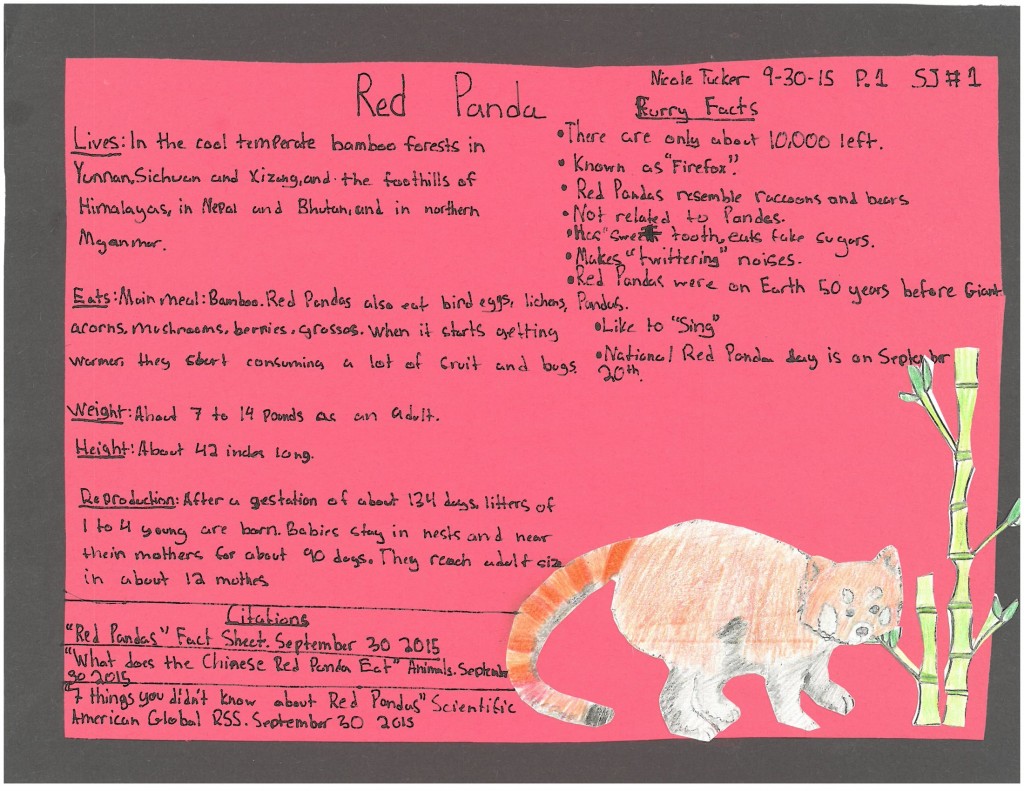 Nicole Tucker 9-30-15 P.1 SJ#1
Red Panda
Lives: In the cool temperate bamboo forests in
Yunnan, Sichuan and Xizang, and the foothills of
Himalayas, in Nepal and Bhutan, and in northern
Myanmar.
Eats: Main meal: Bamboo. Red Pandas also eat bird eggs, lichens,
acorns, mushrooms, berries, grasses. When it starts getting
warmer, they start consuming a lot of fruit and bugs.
Weight: About 7 to 14 pounds as an adult.
Height: About 42 inches long.
Reproduction: After a gestation of about 134 days, litters of
1 to 4 young are born. Babies stay in nests and near
their mothers for about 90 days. They reach adult size
in about 12 mothes
Citations
"Red Pandas" Fact Sheet. September 30 2015
"What does the Chinese Red Panda Eat" Animals. September
30 2015
"7 things you didn't know about Red Pandas" Scientific
American Global RSS. September 30 2015
Furry Facts
•There are only about 10,000 left.
• Known as "Firefox".
• Red Pandas resemble raccoons and bears
•Not related to Pandas.
•Has "sweet tooth, eats fake sugars.
•Makes "twittering" noises.
•Red Pandas were on Earth 50 years before Giant
Pandas.
•Like to "Sing"
•National Red Panda day is on September
20th.